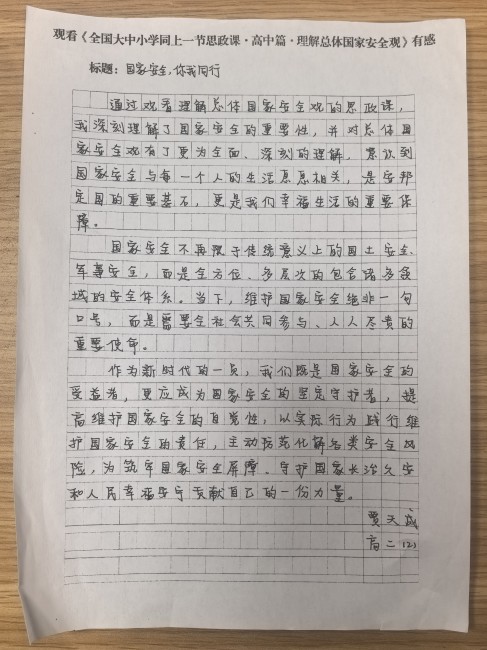 观看《全国大中小学同上一节思政课·高中篇·理解总体国家安全观》有感
标题：国家安全，你我同行
通过观看理解总体国家安全观的思政课，
我深刻理解了国家安全的重要性，并对总体国
家安全观有了更为全面、深刻的理解，意识到
国家安全与每一个人的生活息息相关，是安邦
定国的重要基石，更是我们幸福生活的重要保
障。
国家安全不再限于传统意义上的国土安全、
军事安全，而是全方位、多层次的包含诸多领
域的安全体系。当下，维护国家安全绝非一句
口号，而是需要全社会共同参与、人人尽责的
重要使命。
作为新时代的一员，我们既是国家安全的
受益者，更应成为国家安全的坚定守护者，提
高维护国家安全的自觉性，以实际行为践行维
护国家安全的责任，主动防范化解各类安全风
险，为筑牢国家安全屏障、守护国家长治久安
和人民幸福安宁贡献自己的一份力量。
贾天
高二(2)